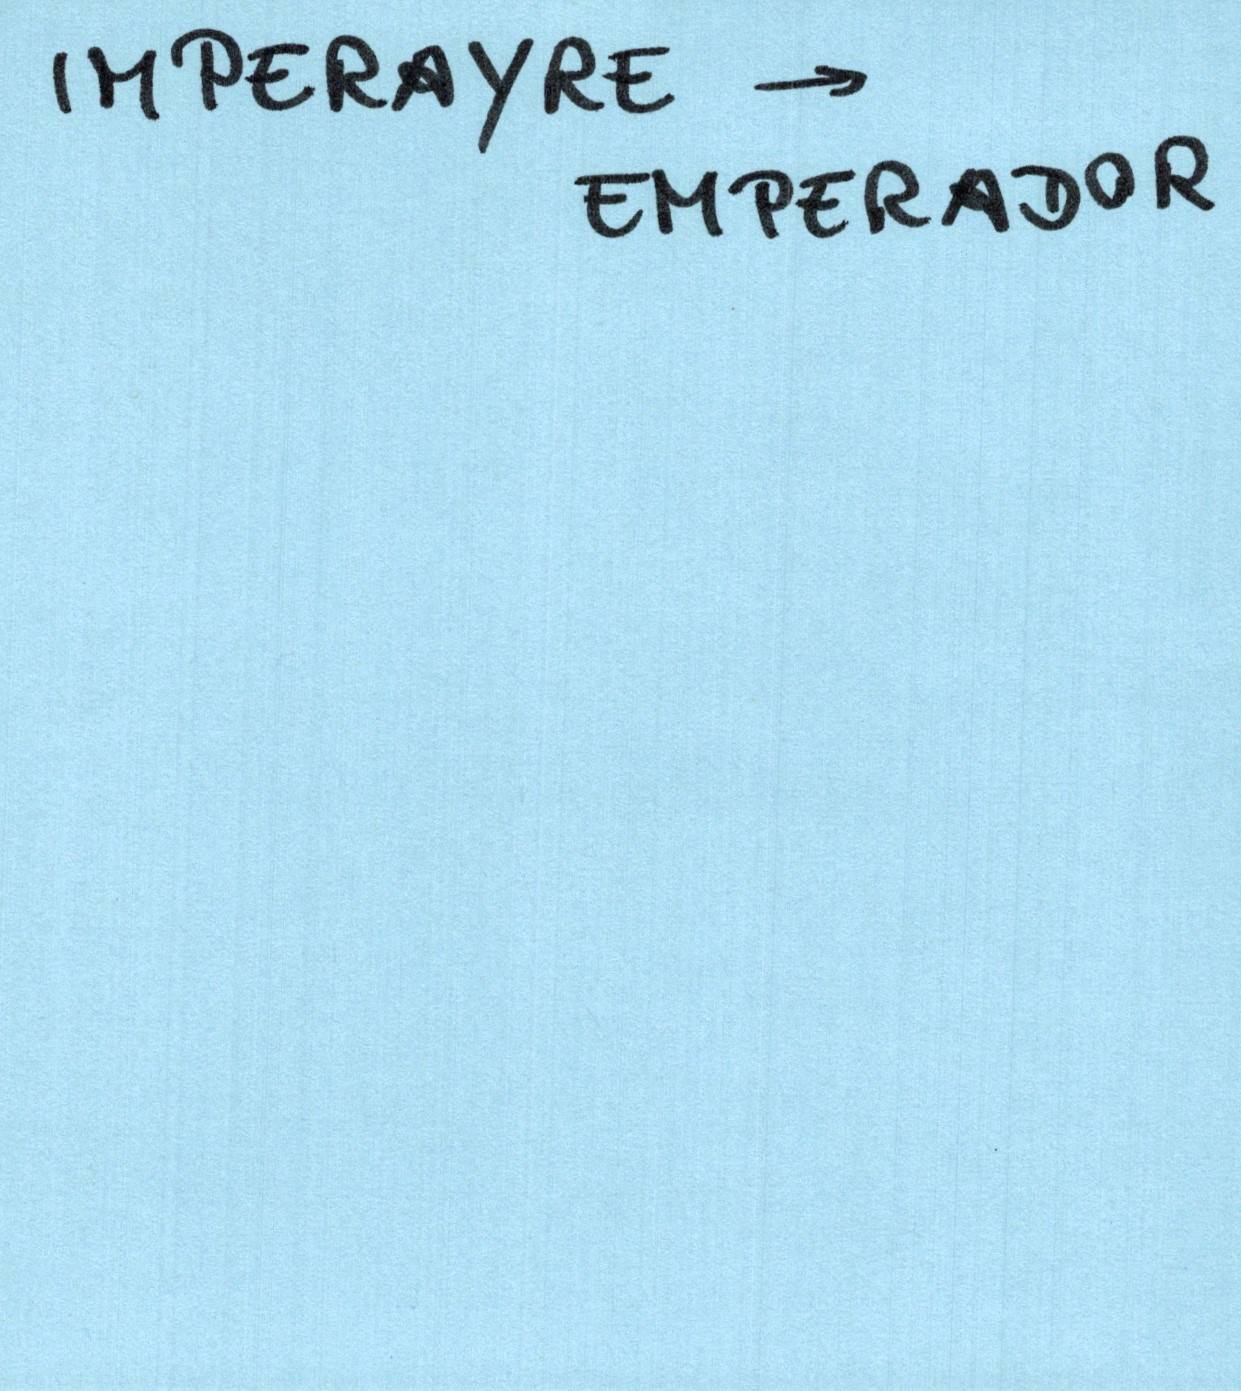 IMPERAYRE →
EMPERADOR